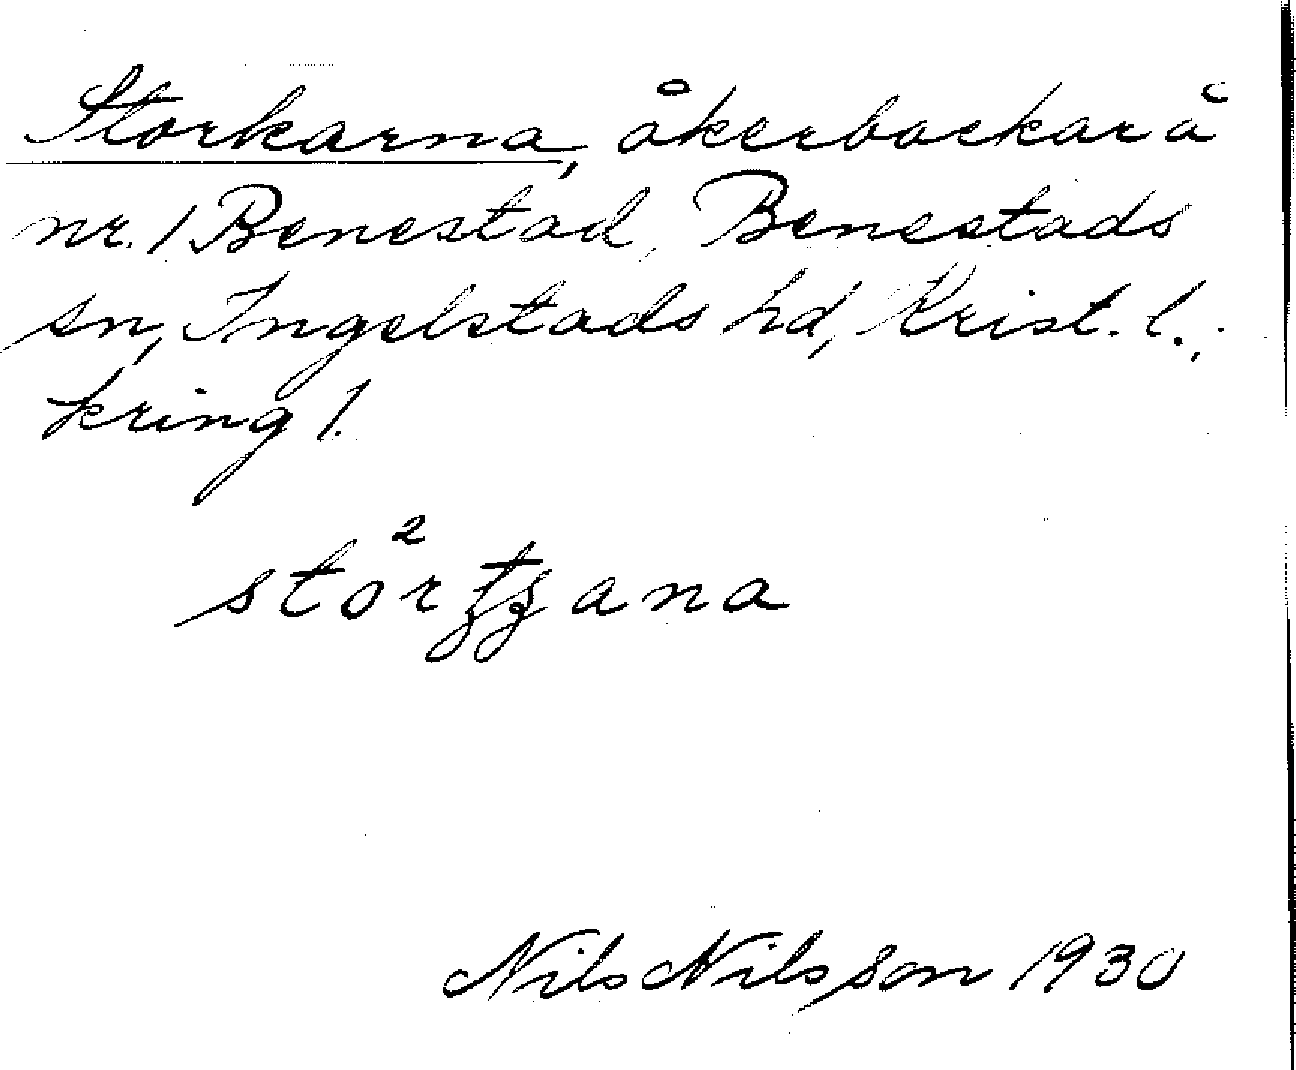 Storkarna, åkerbackar å
nr. 1 Benestad, Benestads
sn, Ingelstads hd, Krist. l.,
kring 1.
Nils Nilsson 1930